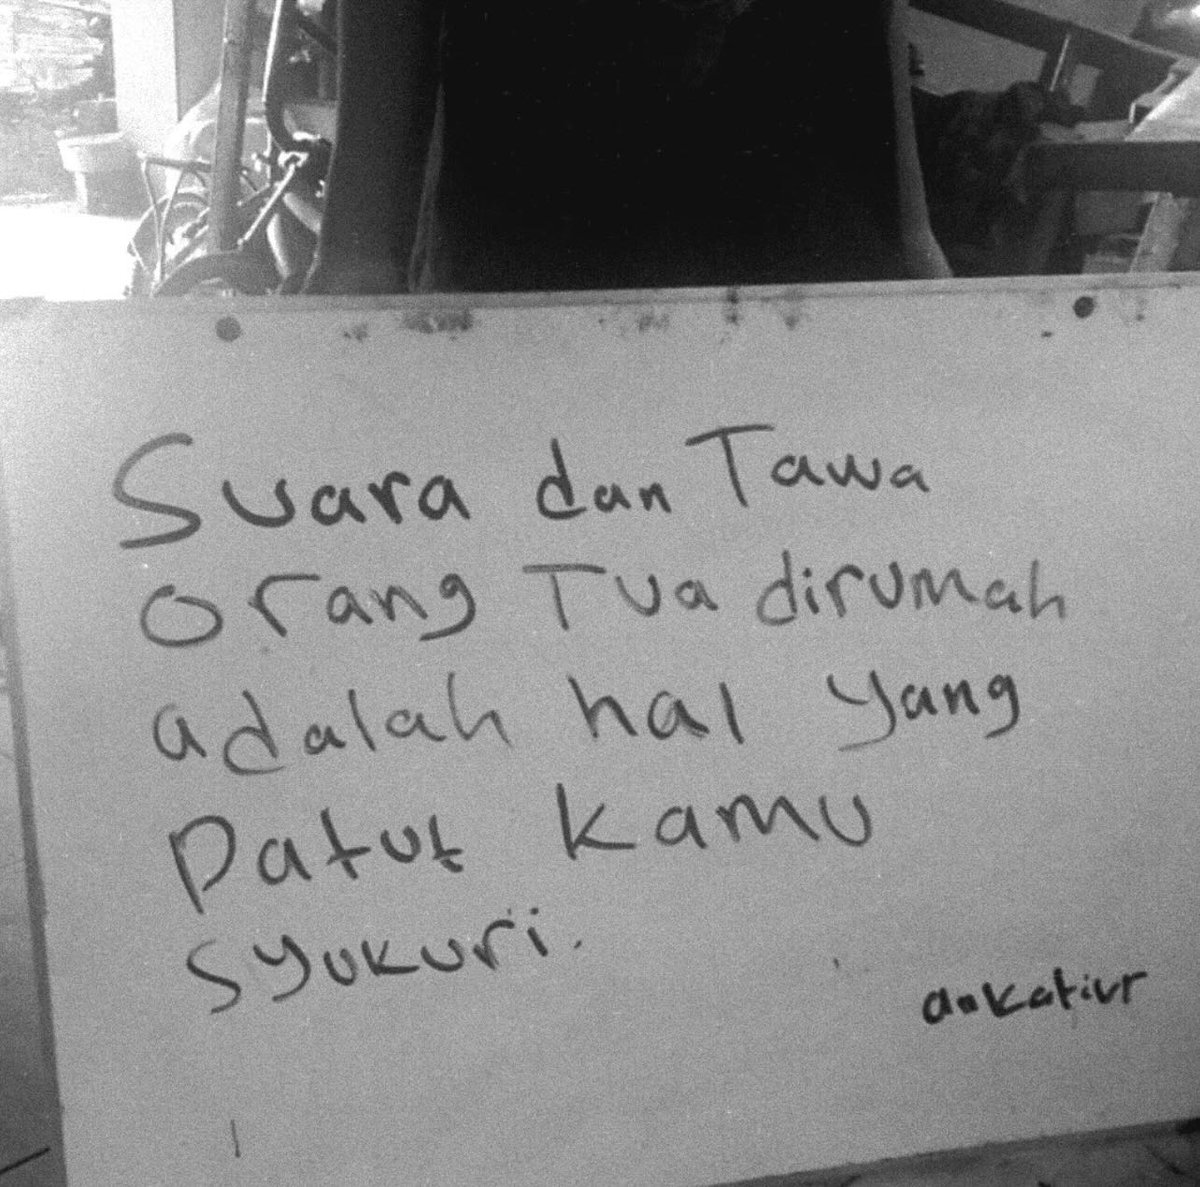 Suara dan Tawa
orang Tua dirumah
adalah hal yang
Patut kamu
syukuri.
ankatiur